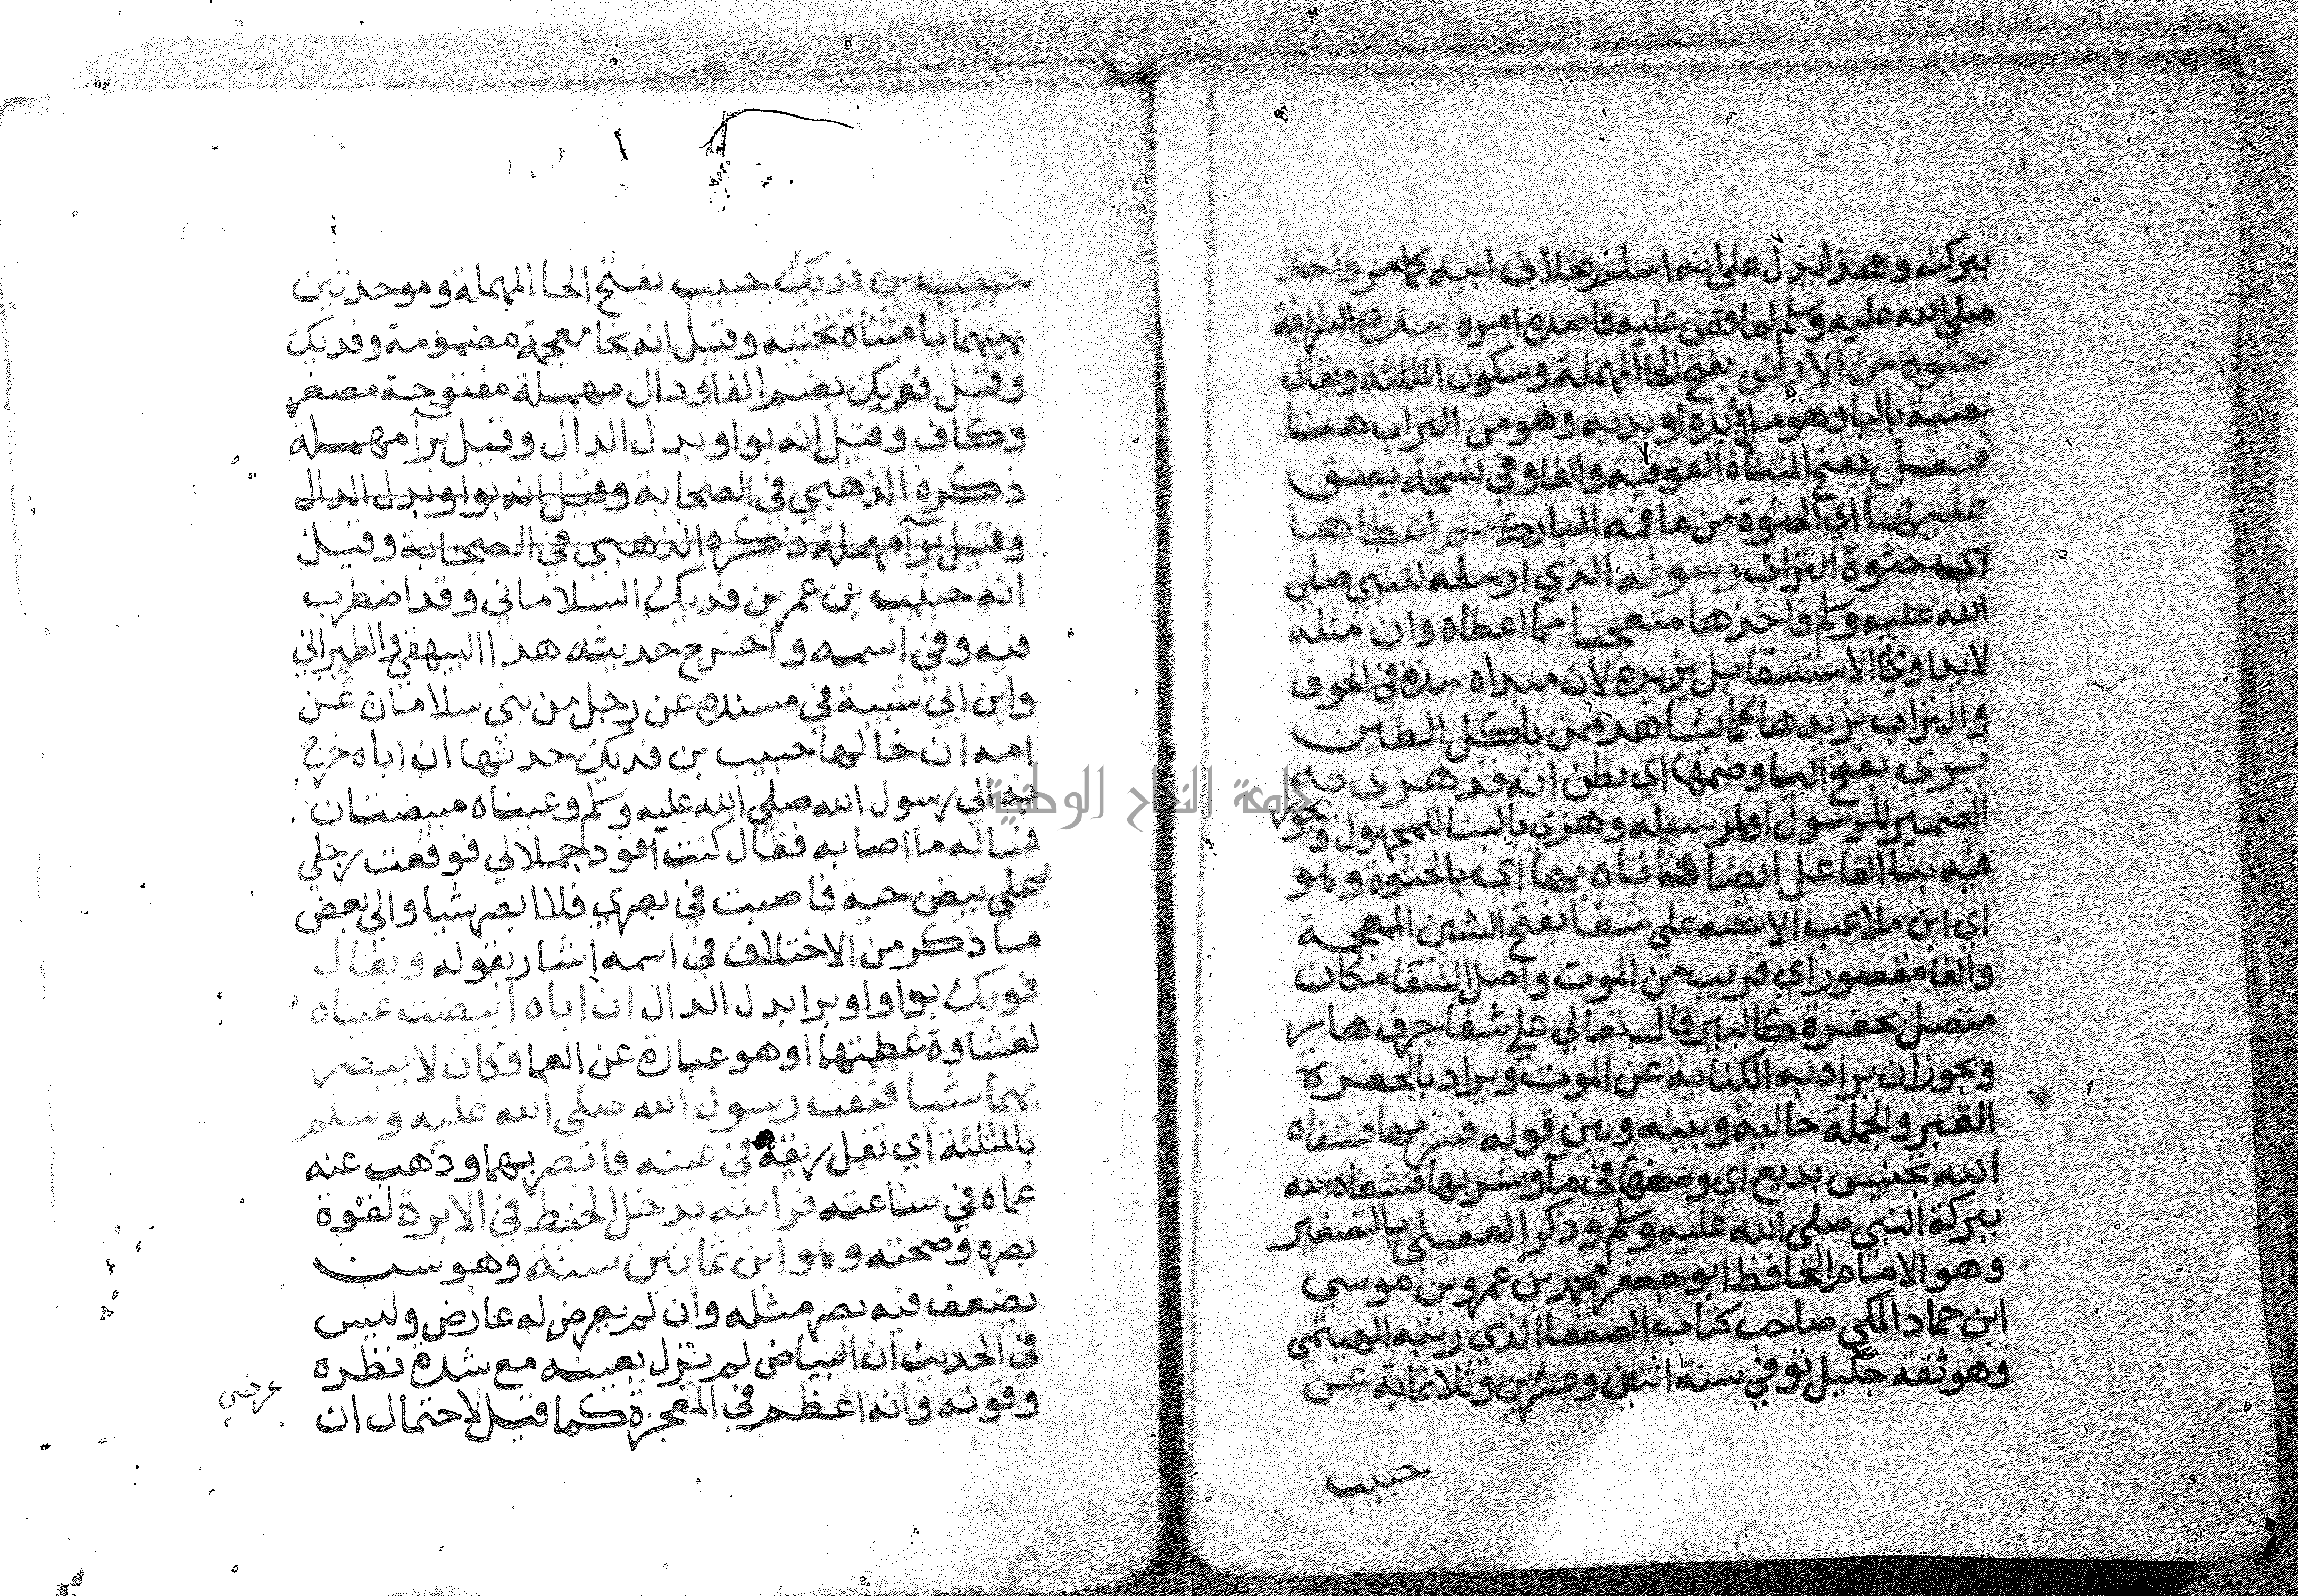 ببركته وهذا يدل على انه اسلم بخلاف ابيه كما مر فاخذ
صلى الله عليه وسلم لما قص عليه قاصده امره بيده الشريفة
حثوة من الارض بفتح الحا المهملة وسكون المثلثة ويقال
حثية باليا وهو ملؤ يده او يديه وهو من التراب هنا
فتفل بفتح المثناة الفوقية والفا وفي نسخة بصق
عليها اي الحثوة من ما فيه المبارك ثم اعطاها
اي حثوة التراب رسوله الذي ارسله للنبي صلى
الله عليه وسلم فاخذها متعجبا مما اعطاه وان مثله
لا يداوي الاستسقا بل يزيده لان منداه سدة في الجوف
والتراب يزيدها كما يشاهد ممن ياكل الطين
يرى بفتح اليا وضمها اي يظن انه قد هزي به
الضمير للرسول او لمرسله وهزي بالبنا للمجهول ويجوز
فيه بنا الفاعل ايضا فاتاه بها اي بالحثوة وهو
اي ابن ملاعب الاسنة على شفا بفتح الشين المعجمة
والفا مقصور اي قريب من الموت واصل الشفا مكان
متصل بحفرة كالبير قال تعالى على شفا جرف هار
ويجوز ان يراد به الكناية عن الموت ويراد بالحفرة
القبر والجملة حالية وبينه وبين قوله فشربها فشفاه
الله تجنيس بديع اي وضعها في مآ وشربها فشفاه الله
ببركة النبي صلى الله عليه وسلم وذكر العقيلي بالتصغير
وهو الامام الحافظ ابو جعفر محمد بن عمرو بن موسى
ابن حماد المكي صاحب كتاب الضعفا الذي رتبه الهيثمي
وهو ثقة جليل توفي سنة اثنتين وعشرين وثلاثماية عن
حبيب
حبيب بن فديك حبيب بفتح الحا المهملة وموحدتين
بينهما يا مثناة تحتية وقيل انه بخا معجمة مضمومة وفديك
وقيل فويك بضم الفا ودال مهملة مفتوحة مصغر
وكاف وقيل انه بواو بدل الدال وقيل برآ مهملة
ذكره الذهبي في الصحابة وقيل انه بواو بدل الدال
وقيل برآ مهملة ذكره الذهبي في الصحابة وقيل
انه حبيب بن عمر بن فديك السلاماني وقد اضطرب
فيه وفي اسمه واخرج حديثه هذا البيهقي والطبراني
وابن ابي شيبة في مسنده عن رجل من بني سلامان عن
امه ان خالها حبيب بن فديك حدثها ان اباه خرج
به الى رسول الله صلى الله عليه وسلم وعيناه مبيضتان
فساله ما اصابه فقال كنت اقود جملا لي فوقعت رجلي
على بيض حية فاصبت في بصري فلا ابصر شيا والى بعض
ما ذكر من الاختلاف في اسمه اشار بقوله ويقال
فويك بواو او برا بدل الدال ان اباه ابيضت عيناه
لغشاوة غطتها او هو عبارة عن العما فكان لا يبصر
بهما شيا فنفث رسول الله صلى الله عليه وسلم
بالمثلثة اي تفل ريقه في عينه فابصر بهما وذهب عنه
عماه في ساعته فرايته يدخل الخيط في الابرة لقوة
بصره وصحته وهو ابن ثمانين سنة وهو سن
يضعف فيه بصر مثله وان لم يعرض له عارض وليس
في الحديث ان البياض لم يزل بعينه مع شدة نظره
وقوته وانه اعظم في المعجزة كما قيل لاحتمال ان
عرضي
جامعة النجاح الوطنية